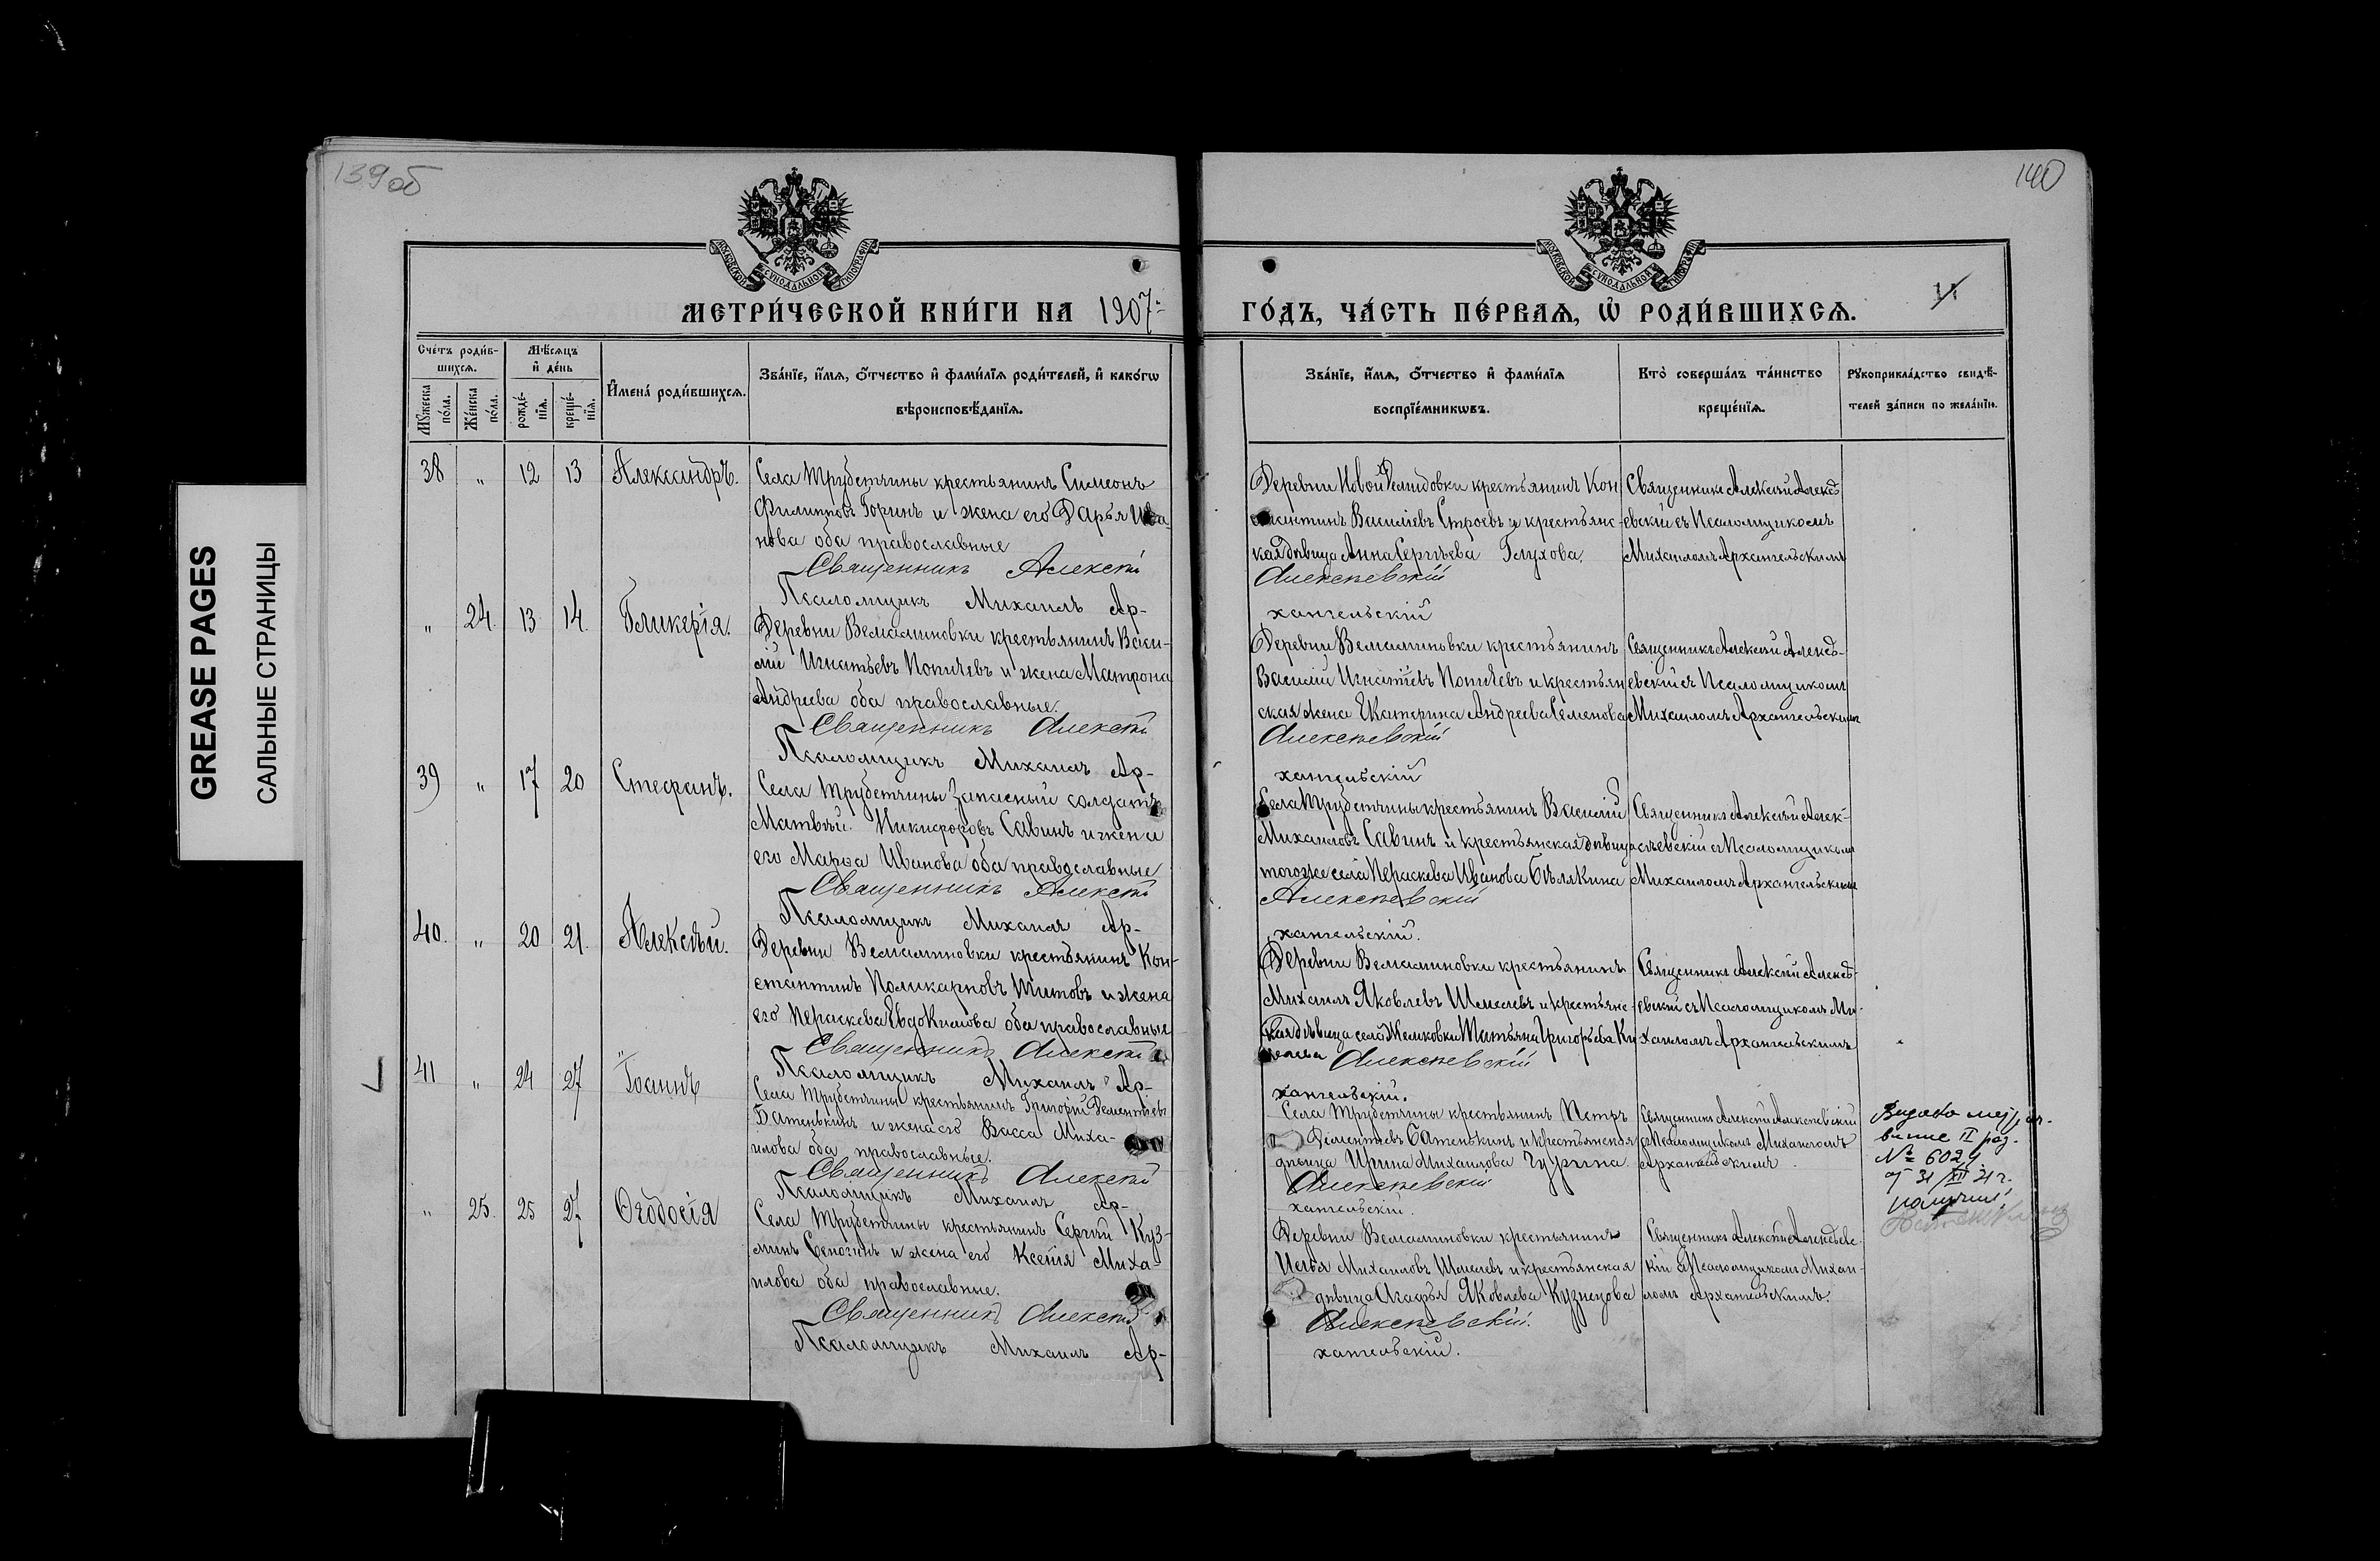 139 об
140
GREASE PAGES
САЛЬНЫЕ СТРАНИЦЫ
МОСКОВСКОЙ СУНОДАЛЬНОЙ ТИПОГРАФІИ
МОСКОВСКОЙ СУНОДАЛЬНОЙ ТИПОГРАФІИ
МЕТРИ́ЧЕСКОЙ КНИ́ГИ НА 1907
ГО́ДЪ, ЧА́СТЬ ПЕ́РВАѦ, Ѡ РОДИ́ВШИХСѦ.
Сче́тъ роди́в-
шихсѧ.
Мѣсѧцъ
и҆ де́нь
Мꙋ́жеска
по́ла.
Же́нска
по́ла.
рожде́-
нїѧ.
креще́-
нїѧ.
И҆мена̀ роди́вшихсѧ.
Зва́нїе, и҆́мѧ, ѻ҆́тчество и҆ фами́лїѧ роди́телей, и҆ како́гѡ
вѣроисповѣ́данїѧ.
Зва́нїе, и҆́мѧ, ѻ҆́тчество и҆ фами́лїѧ
воспрїе́мникѡвъ.
Кто̀ соверша́лъ та́инство
креще́нїѧ.
Рꙋкоприкла́дство свидѣ́-
телей за́писи по жела́нїю.
38 " 12 13 Александръ.
Села Трубетчины крестьянинъ Симеонъ
Филипповъ Горинъ и жена его Дарья Ива-
нова оба православные
Священникъ Алексѣй
Псаломщикъ Михаилъ Ар-
Деревни Новой крестьянинъ Кон
стантинъ Василіевъ Строевъ и крестьянс-
кая дѣвица Анна Сергѣева Глухова.
Алексѣевскій
хангельскій
Священникъ Алексѣй Алексѣ
евскій съ Псаломщикомъ
Михаиломъ Архангельскимъ
" 24. 13 14. Гликерія.
Деревни Вельяминовки крестьянинъ Васи-
лій Игнатьевъ Копичевъ и жена Матрона
Андреева оба православные.
Священникъ Алексѣй
Псаломщикъ Михаилъ Ар-
Деревни Вельяминовки крестьянинъ
Василій Игнатіевъ Копичевъ и крестьян
ская жена Екатерина Андреева Семенова
Алексѣевскій
хангельскій
Священникъ Алексѣй Алексѣ-
евскій съ Псаломщикомъ
Михаиломъ Архангельскимъ
39 " 17 20 Стефанъ.
Села Трубетчины запасный солдатъ
Матвѣй Никифоровъ Савинъ и жена
его Марѳа Иванова оба православные
Священникъ Алексѣй
Псаломщикъ Михаилъ Ар-
Села Трубетчины крестьянинъ Василій
Михаиловъ Савинъ и крестьянская дѣвица
тогоже села Пераскева Иванова Бѣлякина
Алексѣевскій
хангельскій.
Священникъ Алексѣй Алек-
сѣевскій съ Псаломщикомъ
Михаиломъ Архангельскимъ
40. " 20 21. Алексѣй.
Деревни Вельяминовки крестьянинъ Кон-
стантинъ Поликарповъ Титовъ и жена
его Пераскева Евдокимова оба православные
Священникъ Алексѣй
Псаломщикъ Михаилъ Ар-
Деревни Вельяминовки крестьянинъ
Михаилъ Яковлевъ Шмелевъ и крестьянс-
кая дѣвица села Татьяна Григорьева
Алексѣевскій
хангельскій.
Священникъ Алексѣй Алексѣ-
евскій съ Псаломщикомъ Ми-
хаиломъ Архангельскимъ
41 " 24 27 Іоаннъ
Села Трубетчины крестьянинъ Григорій Дементьевъ
Батенькинъ и жена его Васса Миха-
илова оба православные.
Священникъ Алексѣй
Псаломщикъ Михаилъ Ар-
Села Трубетчины крестьянинъ Петръ
Дементіевъ Батенькинъ и крестьянская
дѣвица Ирина Михаилова Чурина
Алексѣевскій
хангельскій.
Священникъ Алексѣй Алексѣевскій
съ Псаломщикомъ Михаиломъ
Архангельскимъ.
№ 6024
31/XII 31 г.
получил
" 25. 25 27 Ѳеодосія
Села Трубетчины крестьянинъ Сергій Куз-
минъ и жена его Ксенія Миха-
илова оба православные.
Священникъ Алексѣй
Псаломщикъ Михаилъ Ар-
Деревни Вельяминовки крестьянинъ
Илья Михаиловъ Шмелевъ и крестьянская
дѣвица Агафья Яковлева Кузнецова
Алексѣевскій.
хангельскій.
Священникъ Алексѣй Алексѣевс-
кій съ Псаломщикомъ Михаи-
ломъ Архангельскимъ.